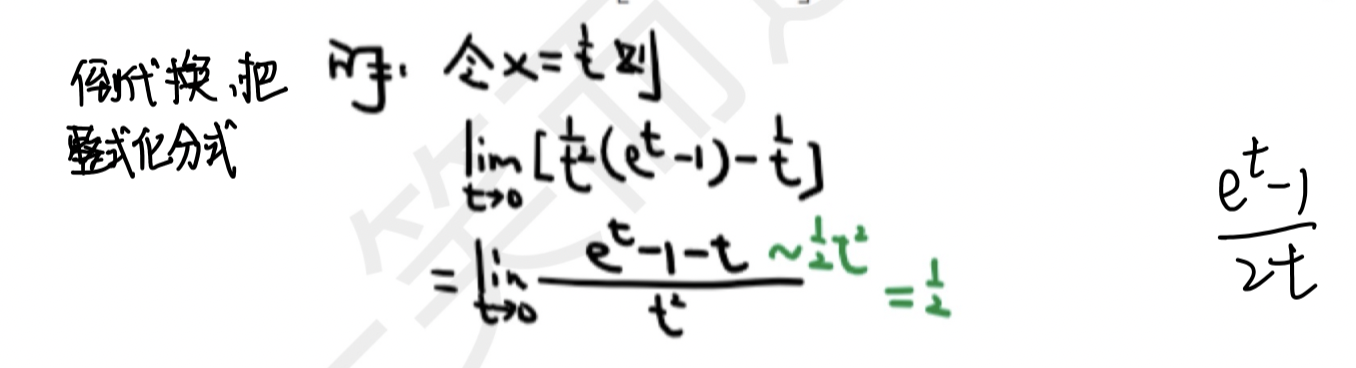 倒代换,把
整式化分式
解: 令x=1/t 则
lim t→0 [1/t²(e^t-1)-1/t]
=lim t→0 (e^t-1-t)/t² ~1/2t² =1/2
(e^t-1)/2t